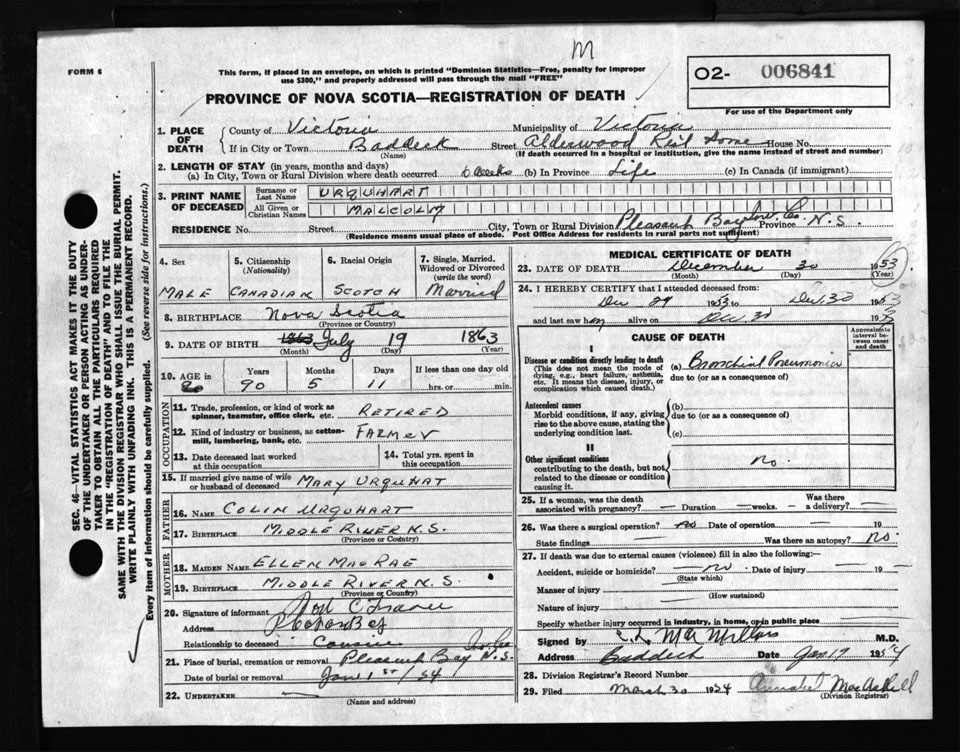 M
FORM 6
This form, if placed in an envelope, on which is printed "Dominion Statistics—Free, penalty for improper
use $300," and properly addressed will pass through the mail "FREE"
02- 006841
For use of the Department only
PROVINCE OF NOVA SCOTIA—REGISTRATION OF DEATH
SEC. 46—VITAL STATISTICS ACT MAKES IT THE DUTY
OF THE UNDERTAKER OR PERSON ACTING AS UNDER-
TAKER TO OBTAIN ALL THE PARTICULARS REQUIRED
IN THE "REGISTRATION OF DEATH" AND TO FILE THE
SAME WITH THE DIVISION REGISTRAR WHO SHALL ISSUE THE BURIAL PERMIT.
WRITE PLAINLY WITH UNFADING INK. THIS IS A PERMANENT RECORD.
Every item of information should be carefully supplied. (See reverse side for instructions.)
1. PLACE OF DEATH
County of Victoria Municipality of Victoria
If in City or Town Baddeck Street Alderwood Rest Home House No.
(Name) (If death occurred in a hospital or institution, give the name instead of street and number)
2. LENGTH OF STAY (in years, months and days)
(a) In City, Town or Rural Division where death occurred 6 weeks (b) In Province Life (c) In Canada (if immigrant)
3. PRINT NAME OF DECEASED
Surname or Last Name URQUHART
All Given or Christian Names MALCOLM
RESIDENCE No. Street City, Town or Rural Division Pleasant Bay Inv. Co. Province N.S.
(Residence means usual place of abode. Post Office Address for residents in rural parts not sufficient)
4. Sex
MALE
5. Citizenship (Nationality)
CANADIAN
6. Racial Origin
SCOTCH
7. Single, Married, Widowed or Divorced (write the word)
Married
8. BIRTHPLACE Nova Scotia
(Province or Country)
9. DATE OF BIRTH 1863 July 19 1863
(Month) (Day) (Year)
10. AGE in Years Months Days If less than one day old
90 5 11 hrs. or min.
OCCUPATION
11. Trade, profession, or kind of work as spinner, teamster, office clerk, etc. RETIRED
12. Kind of industry or business, as cotton-mill, lumbering, bank, etc. FARMER
13. Date deceased last worked at this occupation
14. Total yrs. spent in this occupation
15. If married give name of wife or husband of deceased MARY URQUHAT
FATHER
16. Name COLIN URQUHART
17. Birthplace MIDDLE RIVER N.S.
(Province or Country)
MOTHER
18. MAIDEN NAME ELLEN MACRAE
19. Birthplace MIDDLE RIVER N.S.
(Province or Country)
20. Signature of informant
Address Pleasant Bay
Relationship to deceased Cousin
21. Place of burial, cremation or removal Pleasant Bay N.S.
Date of burial or removal Jan 1st/54
22. UNDERTAKER
(Name and address)
MEDICAL CERTIFICATE OF DEATH
23. DATE OF DEATH December 30 1953
(Month) (Day) (Year)
24. I HEREBY CERTIFY that I attended deceased from
Dec 29 1953 to Dec. 30 1953
and last saw him alive on Dec. 30 195
CAUSE OF DEATH
Approximate interval between onset and death
I
Disease or condition directly leading to death
(This does not mean the mode of dying, e.g., heart failure, asthenia, etc. It means the disease, injury, or complication which caused death.)
(a) Bronchial Pneumonia
due to (or as a consequence of)
Antecedent causes
Morbid conditions, if any, giving rise to the above cause, stating the underlying condition last.
(b)
due to (or as a consequence of)
(c)
II
Other significant conditions
contributing to the death, but not related to the disease or condition causing it.
no.
25. If a woman, was the death associated with pregnancy? — Duration — weeks. — Was there a delivery? —
26. Was there a surgical operation? no Date of operation — 19
State findings — Was there an autopsy? no
27. If death was due to external causes (violence) fill in also the following:—
Accident, suicide or homicide? — no — Date of injury — 19 —
(State which)
Manner of injury
(How sustained)
Nature of injury
Specify whether injury occurred in industry, in home, or in public place
Signed by C. L. MacMillan M.D.
Address Baddeck Date Jan 19 1954
28. Division Registrar's Record Number
29. Filed March 30 1954 Annabel MacAskill
(Division Registrar)